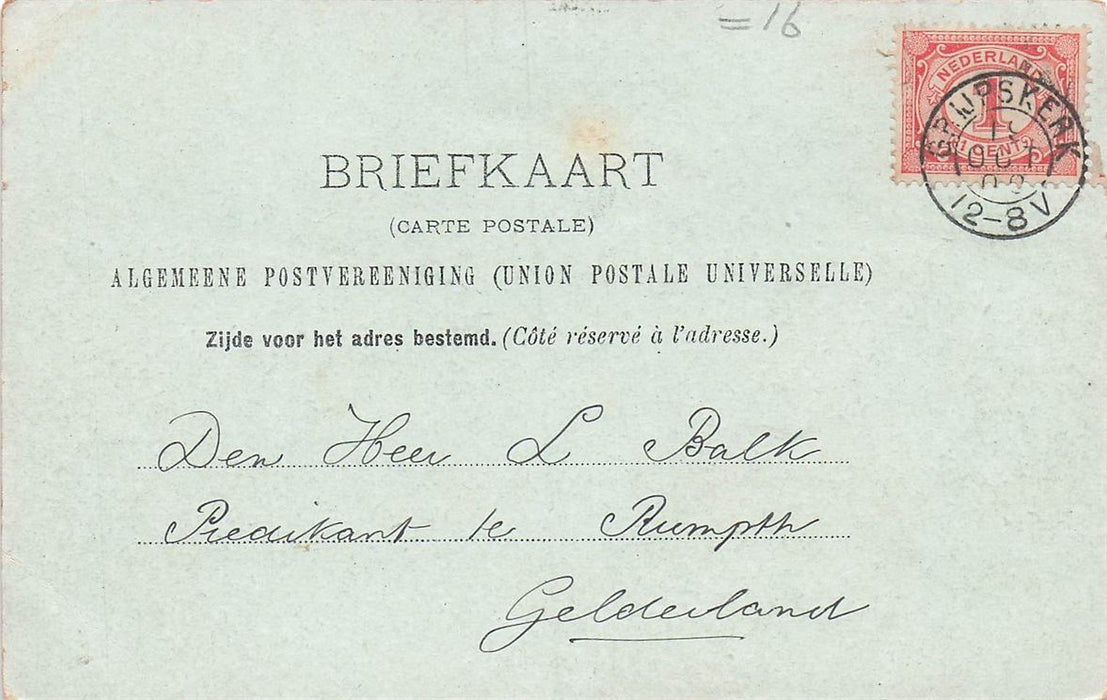 =16
NEDERLAND
1
(1 CENT)
GRIJPSKERK
OCT
12-8V
BRIEFKAART
(CARTE POSTALE)
ALGEMEENE POSTVEREENIGING (UNION POSTALE UNIVERSELLE)
Zijde voor het adres bestemd. (Côté réservé à l'adresse.)
Den Heer L Balk
Predikant te Rumpth
Gelderland